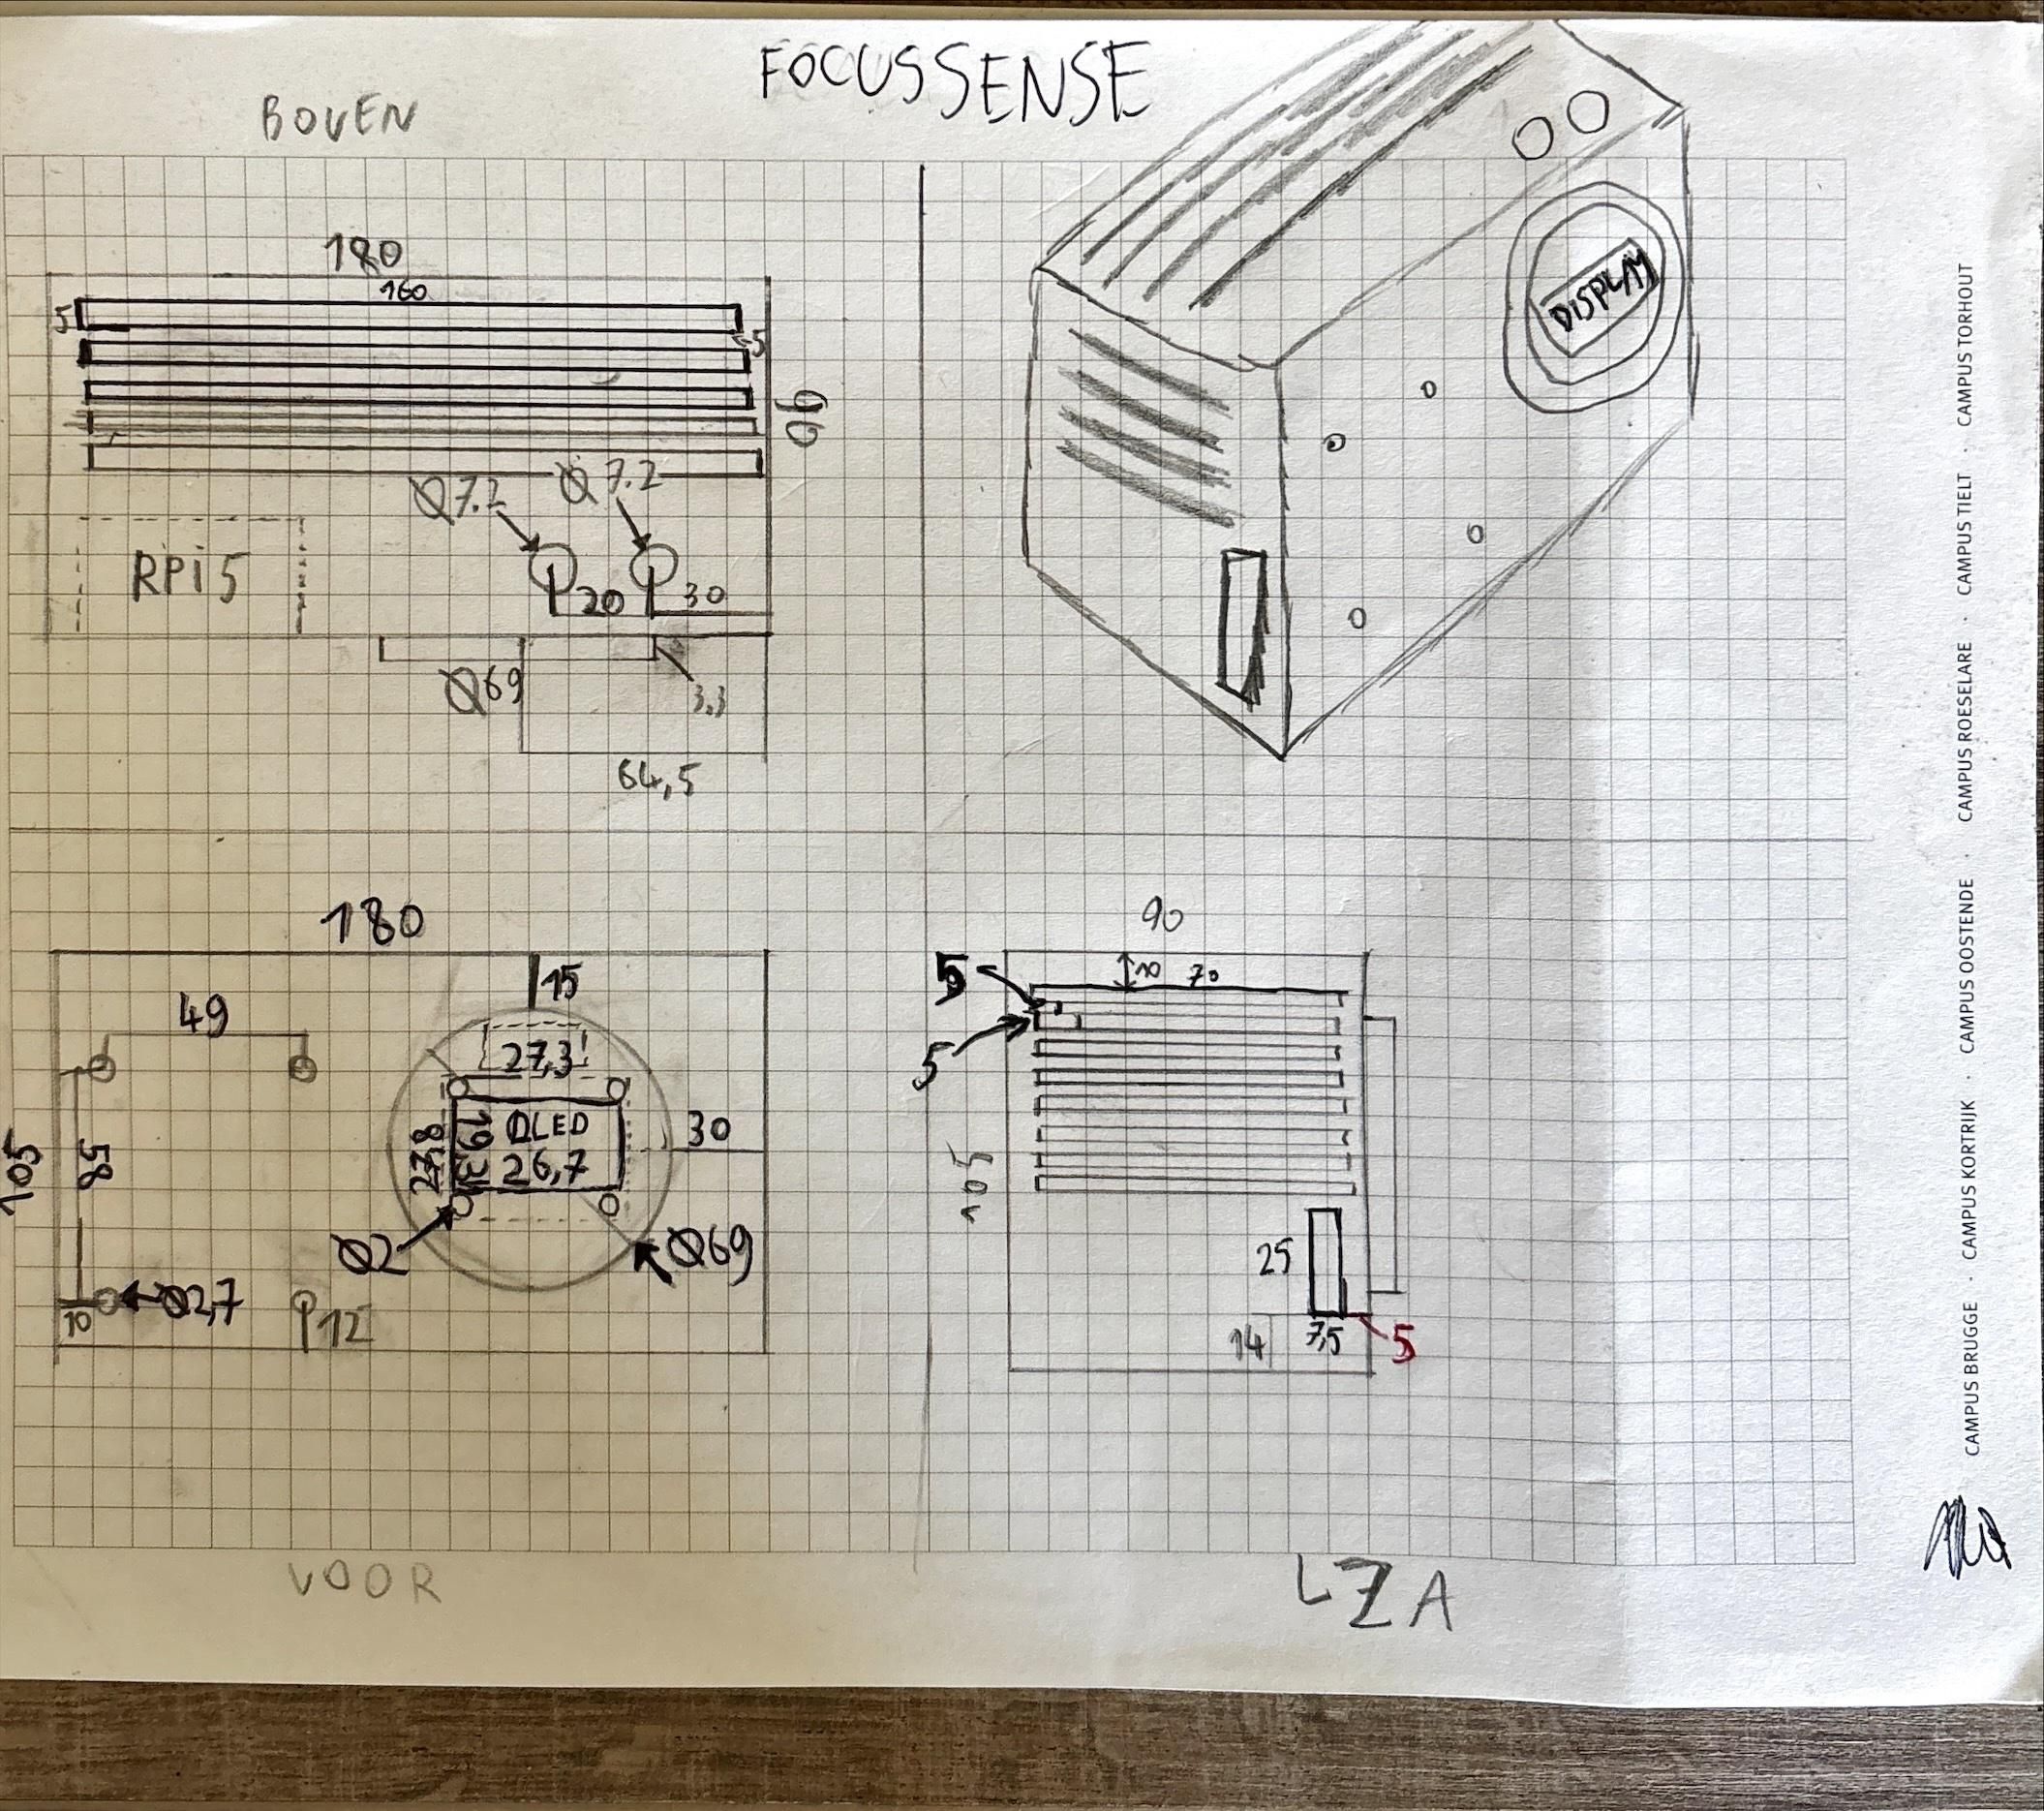 FOCUSSENSE
BOVEN
180
160
5
5
90
Ø7.2
Ø7.2
RPi5
20
30
Ø69
3,3
64,5
DISPLAY
180
15
49
27,3
105
58
27,8
19,3
OLED
26,7
30
Ø2
Ø69
10
Ø2,7
12
VOOR
90
5
10
70
5
105
25
14
7,5
5
LZA
CAMPUS BRUGGE · CAMPUS KORTRIJK · CAMPUS OOSTENDE · CAMPUS ROESELARE · CAMPUS TIELT · CAMPUS TORHOUT